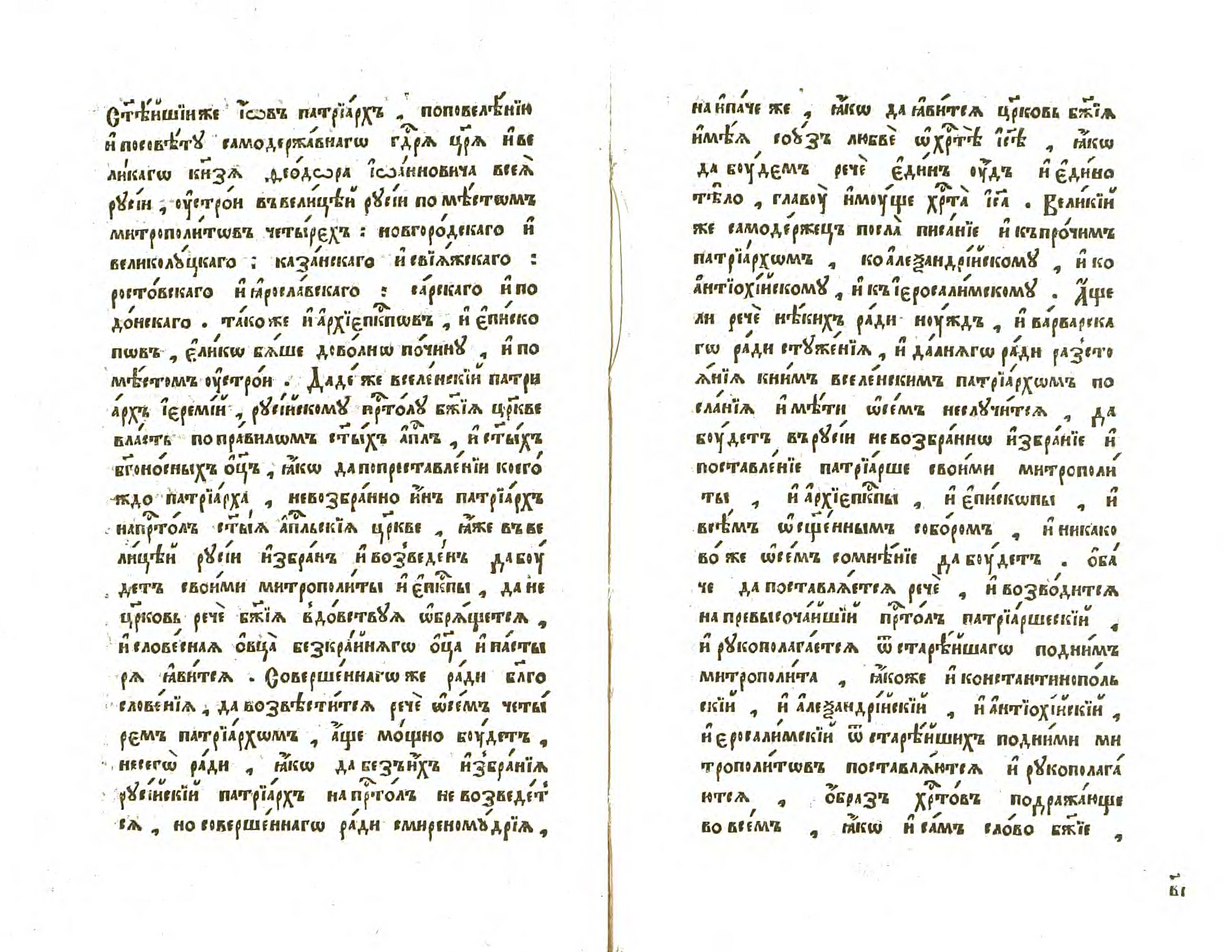 Ст҃ѣ́йшїи же і҆́ѡвъ патрїа́рхъ , поповелѣ́нїю
и҆ посовѣ́тꙋ самодержа́внагѡ гдⷭ҇рѧ цр҃ѧ и҆ ве
ликагѡ кн҃зѧ ѳео́дѡра і҆ѡа́нновича всеѧ̀
рꙋсі́и , ᲂу҆стро́и въвели́цѣй рꙋсі́и по мѣ́стѡмъ
митрополи́тѡвъ четы́рехъ : новгоро́дскаго и҆
великолꙋ́цкаго : каза́нскаго и҆ свїѧ́жскаго :
росто́вскаго и҆ ꙗ҆росла́вскаго : са́рскаго и҆ по
до́нскаго . тако́же и҆ а҆рхїепⷭ҇кпѡвъ , и҆ є҆пи́ско
пѡвъ , є҆ли́кѡ бѧ́ше дово́лнѡ по чи́нꙋ , и҆ по
мѣ́стомъ ᲂу҆стро́и . Даде́ же вселе́нскїй патри
а́рхъ і҆еремі́й , рꙋсі́йскомꙋ прⷭ҇то́лꙋ бж҃їѧ цр҃кве
вла́сть по пра́вилѡмъ ст҃ы́хъ а҆пⷭ҇лъ , и҆ ст҃ы́хъ
бг҃оно́сныхъ ѻ҆ц҃ъ , ꙗ҆́кѡ да попреставле́нїи коего́
ждо патрїа́рха , невозбра́нно и҆́нъ патрїа́рхъ
на прⷭ҇то́лъ ст҃ы́ѧ а҆пⷭ҇льскїѧ цр҃кве , ꙗ҆́же въ ве
ли́цѣй рꙋсі́и и҆збра́нъ и҆ возведе́нъ да боу́
детъ свои́ми митрополи́ты и҆ є҆пⷭ҇кпы , да не
цр҃ковь речѐ бж҃їѧ вдо́вствꙋѧ ѡ҆брѧ́щетсѧ ,
и҆ слове́снаѧ ѻ҆вца̀ безкра́йнѧгѡ ѻ҆ц҃а и҆ па́сты
рѧ ꙗ҆ви́тсѧ . Соверше́ннагѡ же ра́ди бл҃го
слове́нїѧ , да возвѣсти́тсѧ речѐ всѣ́мъ четы́
ремъ патрїа́рхѡмъ , а҆́ще мо́щно боу́детъ ,
не сегѡ̀ ра́ди , ꙗ҆́кѡ да безъ и҆́хъ и҆збра́нїѧ
рꙋсі́йскїй патрїа́рхъ на прⷭ҇то́лъ не возведе́т
сѧ , но соверше́ннагѡ ра́ди смиреномꙋ́дрїѧ ,
на и҆па́че же , ꙗ҆́кѡ да ꙗ҆ви́тсѧ цр҃ковь бж҃їѧ
и҆мѣ́ѧ сою́зъ любвѐ ѡ҆ хрⷭ҇тѣ̀ і҆сⷭ҇ѣ , ꙗ҆́кѡ
да боу́демъ речѐ є҆ди́нъ оу҆́дъ и҆ є҆ди́но
тѣ́ло , главоу̀ и҆мꙋ́ще хрⷭ҇та̀ і҆сⷭ҇а . Вели́кїй
же самоде́ржецъ посла̀ писа́нїе и҆ къ про́чимъ
патрїа́рхѡмъ , ко а҆леѯандрі́йскомꙋ , и҆ ко
а҆нтїохі́йскомꙋ , и҆ къ і҆еросали́мскомꙋ . А҆́ще
ли речѐ нѣ́кихъ ра́ди ноу́ждъ , и҆ ва́рварска
гѡ ра́ди стꙋже́нїѧ , и҆ да́лнѧгѡ ра́ди разсто
ѧ́нїѧ книмъ вселе́нскимъ патрїа́рхѡмъ по
сла́нїѧ и҆мѣ́ти ѡ҆ се́мъ неслꙋчи́тсѧ , да
боу́детъ въ рꙋсі́и невозбра́ннѡ и҆збра́нїе и҆
поставле́нїе патрїа́рше свои́ми митрополи́
ты , и҆ а҆рхїепⷭ҇кпы , и҆ є҆пи́скѡпы , и҆
всѣ́мъ ѡ҆сщ҃е́ннымъ собо́ромъ , и҆ никако
во же ѡ҆ се́мъ сомнѣ́нїе да боу́детъ . ѻ҆ба́
че да поставлѧ́етсѧ речѐ , и҆ возво́дитсѧ
на превысоча́йшїй прⷭ҇то́лъ патрїа́ршескїй ,
и҆ рꙋкополага́етсѧ ѿ старѣ́йшагѡ под ни́мъ
митрополи́та , ꙗ҆́коже и҆ константинопо́ль
скїй , и҆ а҆леѯандрі́йскїй , и҆ а҆нтїохі́йскїй ,
и҆ єросали́мскїй ѿ старѣ́йшихъ под ни́ми ми
трополи́тѡвъ поставлѧ́ютсѧ и҆ рꙋкополага́
ютсѧ , ѻ҆́бразъ хрⷭ҇то́въ подража́юще
во все́мъ , ꙗ҆́кѡ и҆ са́мъ сло́во бж҃їе ,
в҃і